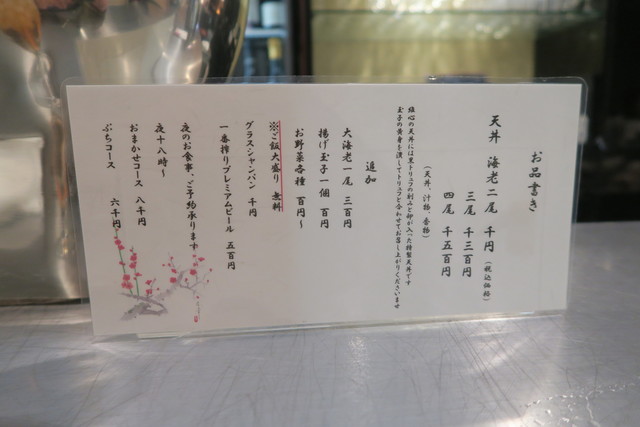 お品書き
天丼 海老二尾 千円 (税込価格)
三尾 千三百円
四尾 千五百円
(天丼、汁物、香物)
玉子の黄身を潰してトリュフと合わせてお召し上がりくださいませ
追加
大海老一尾 三百円
揚げ玉子一個 百円
お野菜各種 百円〜
※ご飯大盛り 無料
グラスシャンパン 千円
一番搾りプレミアムビール 五百円
夜のお食事、ご予約承ります
夜十八時〜
おまかせコース 八千円
ぷちコース 六千円